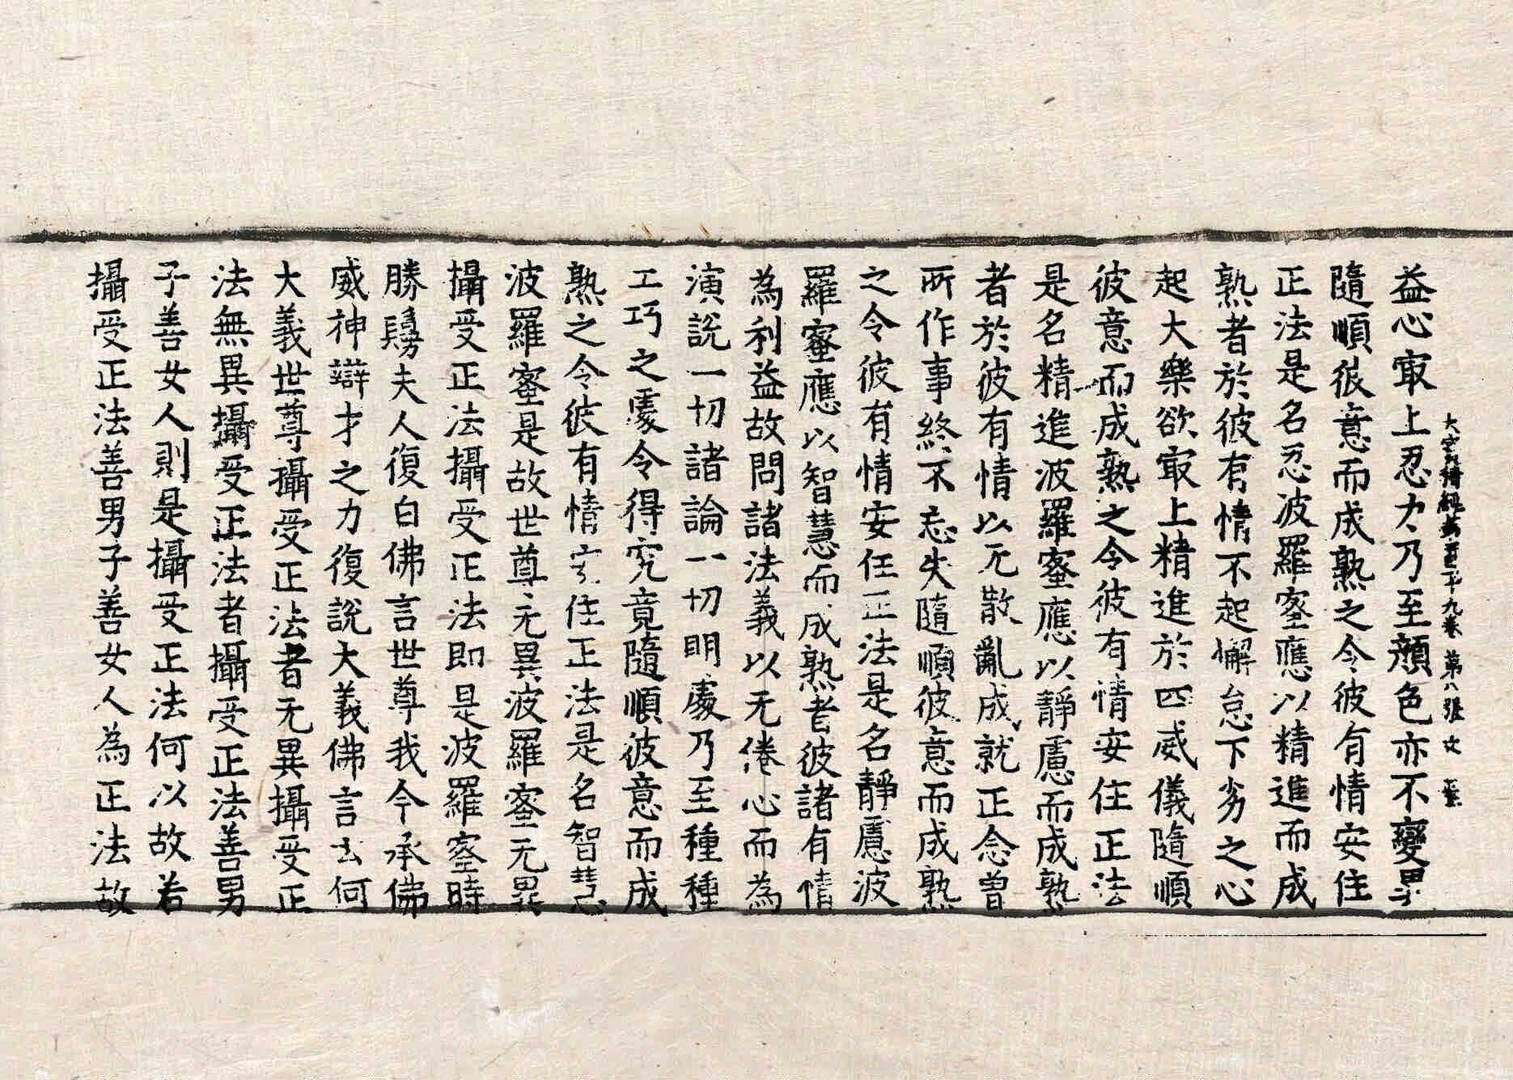 大寶積經第一百一十九卷 第八張 女 𡖖
益心冣上忍力乃至顔色亦不變異
隨順彼意而成熟之令彼有情安住
正法是名忍波羅蜜應以精進而成
熟者於彼有情不起懈怠下劣之心
起大樂欲冣上精進於四威儀隨順
彼意而成熟之令彼有情安住正法
是名精進波羅蜜應以靜慮而成熟
者於彼有情以无散亂成就正念曾
所作事終不忘失隨順彼意而成熟
之令彼有情安住正法是名靜慮波
羅蜜應以智慧而成熟者彼諸有情
為利益故問諸法義以无倦心而為
演說一切諸論一切明處乃至種種
工巧之處令得究竟隨順彼意而成
熟之令彼有情安住正法是名智慧
波羅蜜是故世尊无異波羅蜜无異
攝受正法攝受正法即是波羅蜜時
勝鬘夫人復白佛言世尊我今承佛
威神辯才之力復說大義佛言云何
大義世尊攝受正法者无異攝受正
法無異攝受正法者攝受正法善男
子善女人則是攝受正法何以故若
攝受正法善男子善女人為正法故